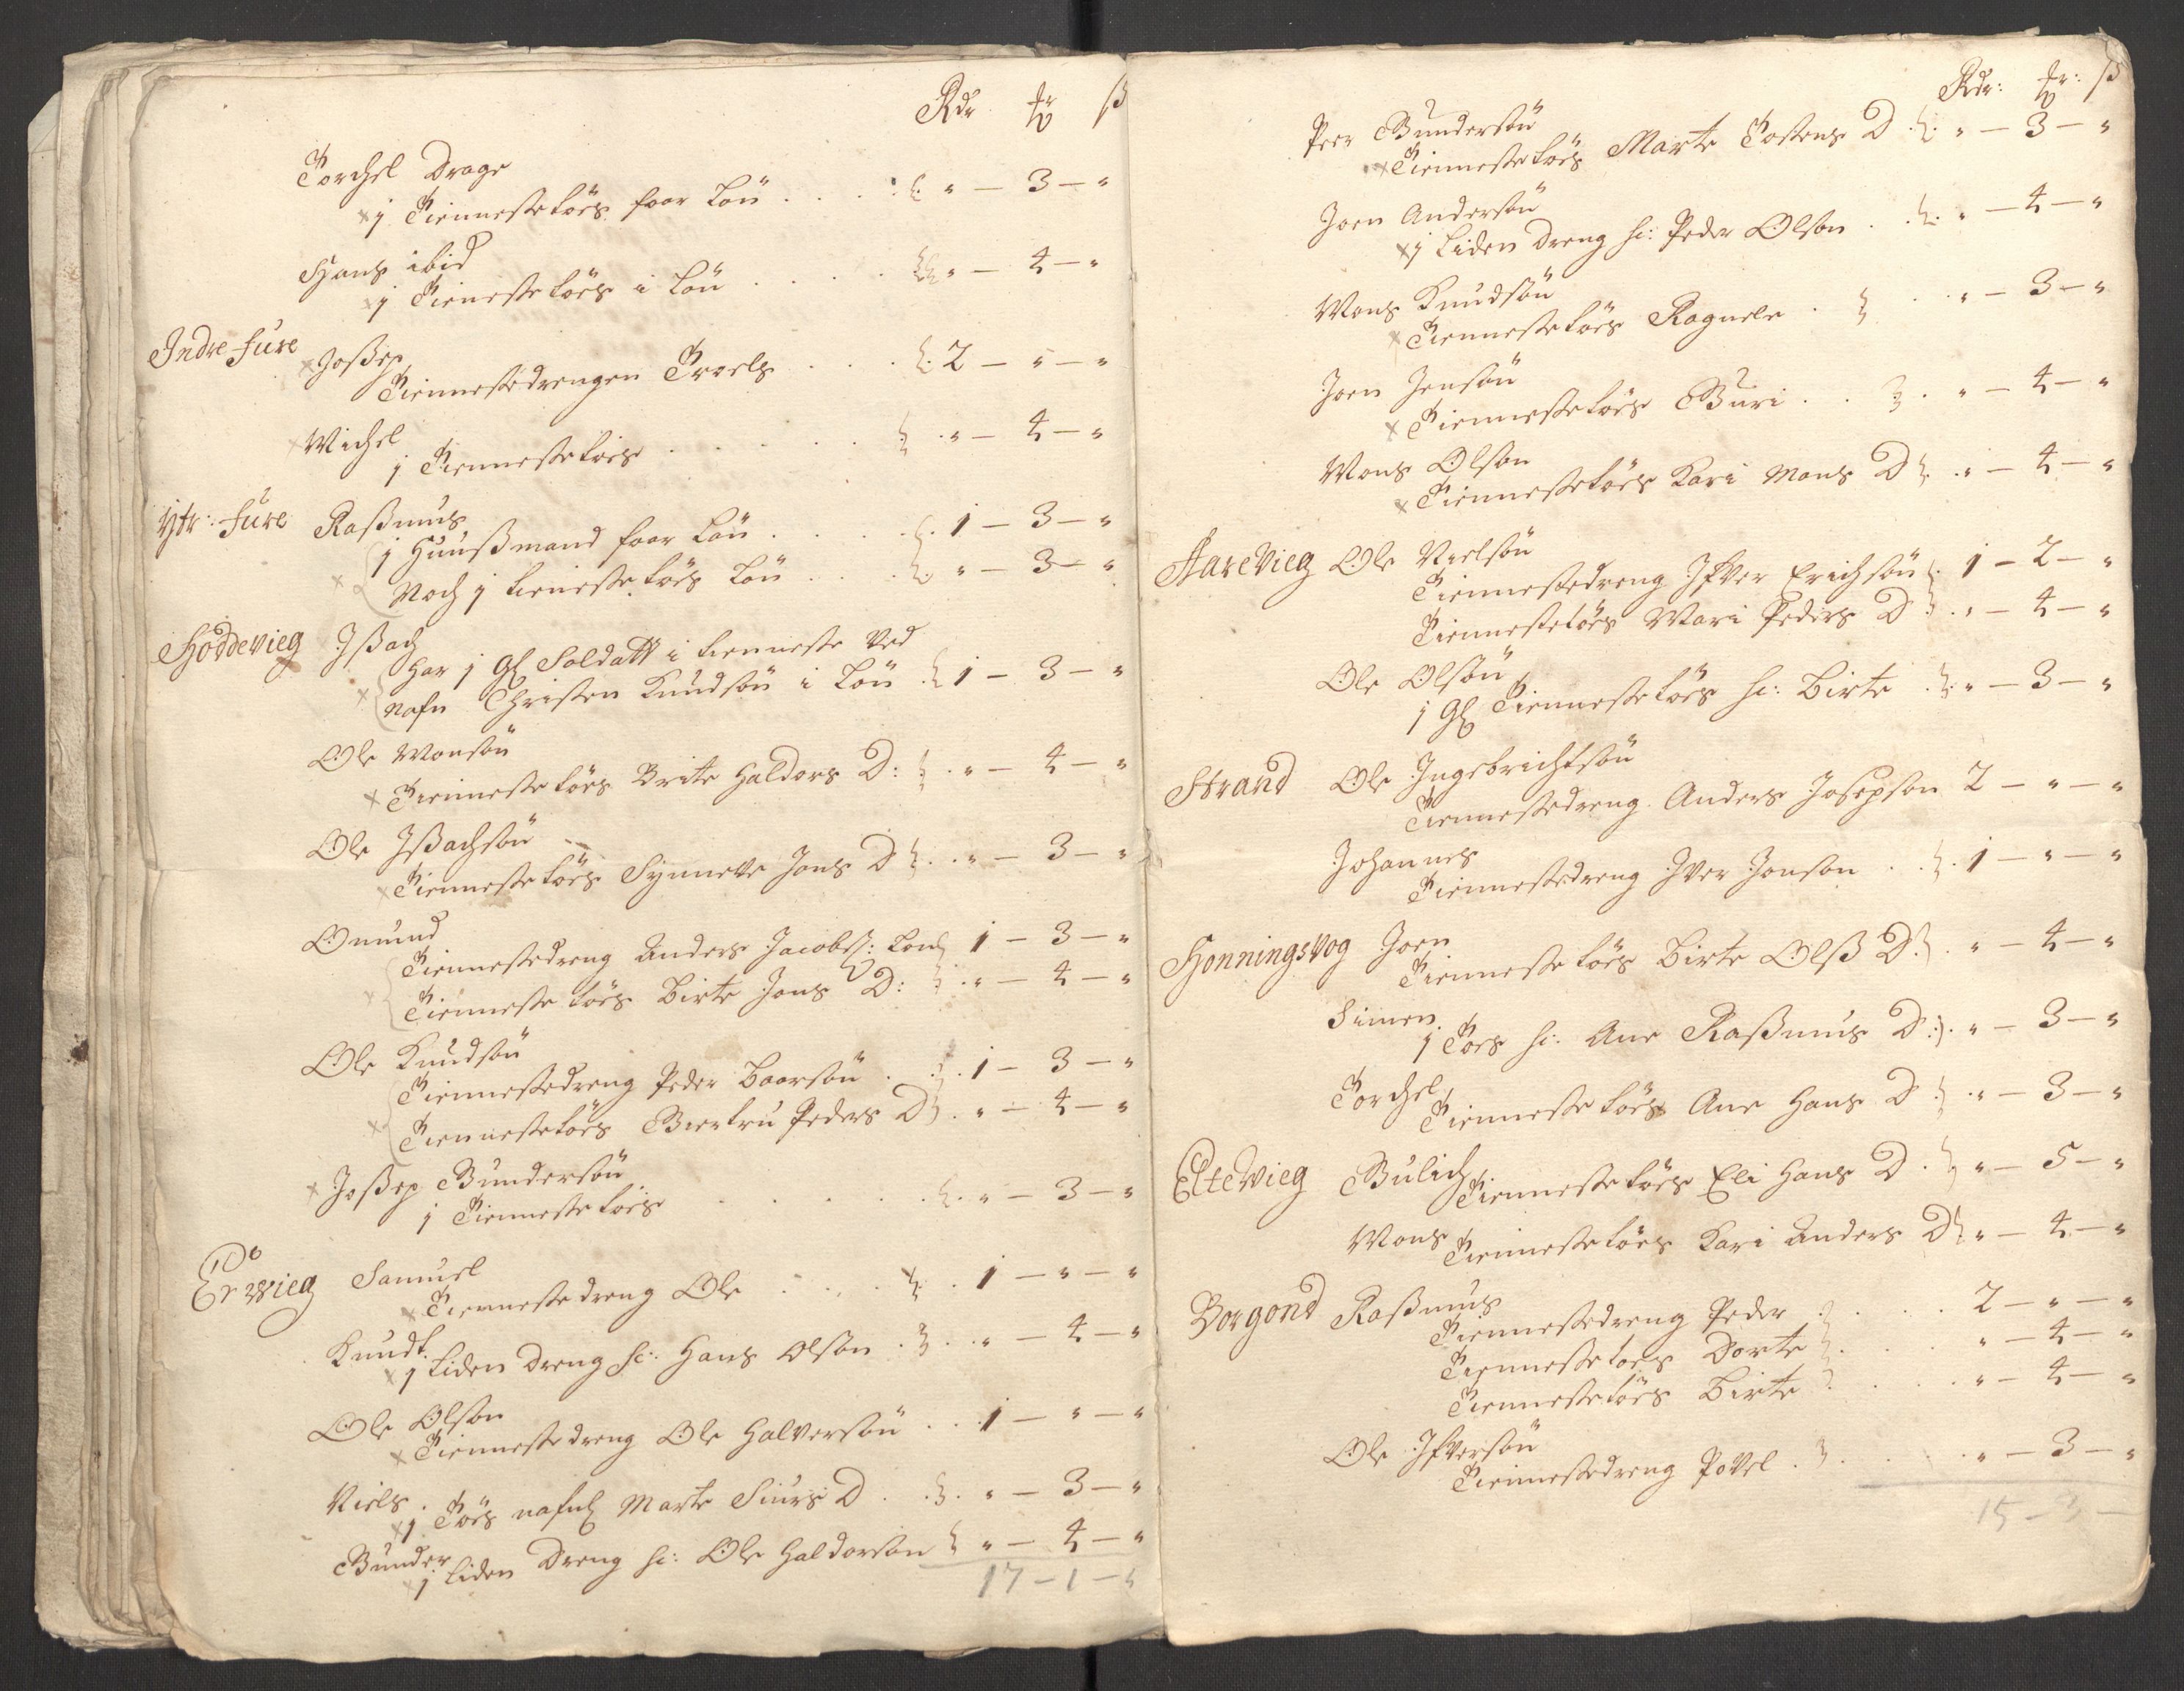 Rdr ß
Torchel Drage
j Tienneste töes faar Lön . . . . " — 3 — "
Hans ibid
j Tieneste töes i Lön . . . . " — 4 — "
Indre Fure Joßep
Tiennestedrengen Troels . . . 2 — " — "
Michel
j Tienneste töes . . . . . " — 4 — "
Ytr: Fure Raßmus
j Huußmand faar Løn . . . . 1 — 3 — "
Noch j tieneste töes Løn . . . " — 3 — "
Hoddevieg Ißach
Har j Gl Soldatt i tienneste ved
nafn Christen Knudsøn i Løn . 1 — 3 — "
Ole Monsøn
Tienneste töes Brite Haldors D: . " — 4 — "
Ole Ißachsøn
Tienneste töes Synneve Jons D . . " — 3 — "
Omund
Tiennestedreng Anders Jacobs: Løn 1 — 3 — "
Tienneste töes Birte Jons D: . " — 4 — "
Ole Knudsøn
Tiennestedreng Peder Baarsøn . . 1 — 3 — "
Tienneste töes Giertru Peders D . " — 4 — "
Joßep Gundersøn
j Tienneste töes . . . . . " — 3 — "
Ervieg Samuel
Tiennestedreng Ole . . . . 1 — " — "
Knudt
j liden dreng h: Hans Olsøn . . " — 4 — "
Ole Olsøn
Tiennestedreng Ole Halversøn . . 1 — " — "
Niels .
j Töes nafnl Marte Siurs D . . " — 3 — "
Gunder
j liden Dreng h: Ole Haldorsøn " — 4 — "
17 — 1 — "
Rdr: ß
Peer Gundersøn
Tienneste töes Marte Tostens D . " — 3 — "
Joen Andersøn
j liden dreng h: Peder Olsøn . . " — 4 — "
Mons Knudsøn
Tienneste töes Ragnele . . . " — 3 — "
Joen Jensøn
Tienneste töes Guri . . . " — 4 — "
Mons Olsøn
Tienneste töes Kari Mons D . " — 4 — "
Aarevieg Ole Nielsøn
Tiennestedreng Ifver Erichsøn . 1 — 2 — "
Tiennestetöes Mari Peders D . " — 4 — "
Ole Olsøn
j Gl Tienneste töes h: Birte . " — 3 — "
Strand Ole Ingebrichtsøn
Tiennestedreng Anders Josepsøn 2 — " — "
Johannes
Tiennestedreng Iver Jonsøn . . 1 — " — "
Honningsvog Joen
Tienneste töes Birte Olß D . " — 4 — "
Simen
j Töes h: Ane Raßmus D . " — 3 — "
Torchel
Tienneste töes Ane Hans D . " — 3 — "
Eltevieg Gulich
Tienneste töes Eli Hans D . " — 5 — "
Mons
Tienneste töes Kari Anders D " — 4 — "
Borgond Raßmus
Tiennestedreng Peder . . . 2 — " — "
Tienneste töes Dorte . . . " — 4 — "
Tienneste töes Birte . . . " — 4 — "
Ole Ifversøn
Tiennestedreng Povel . . . " — 3 — "
15 — 3 —